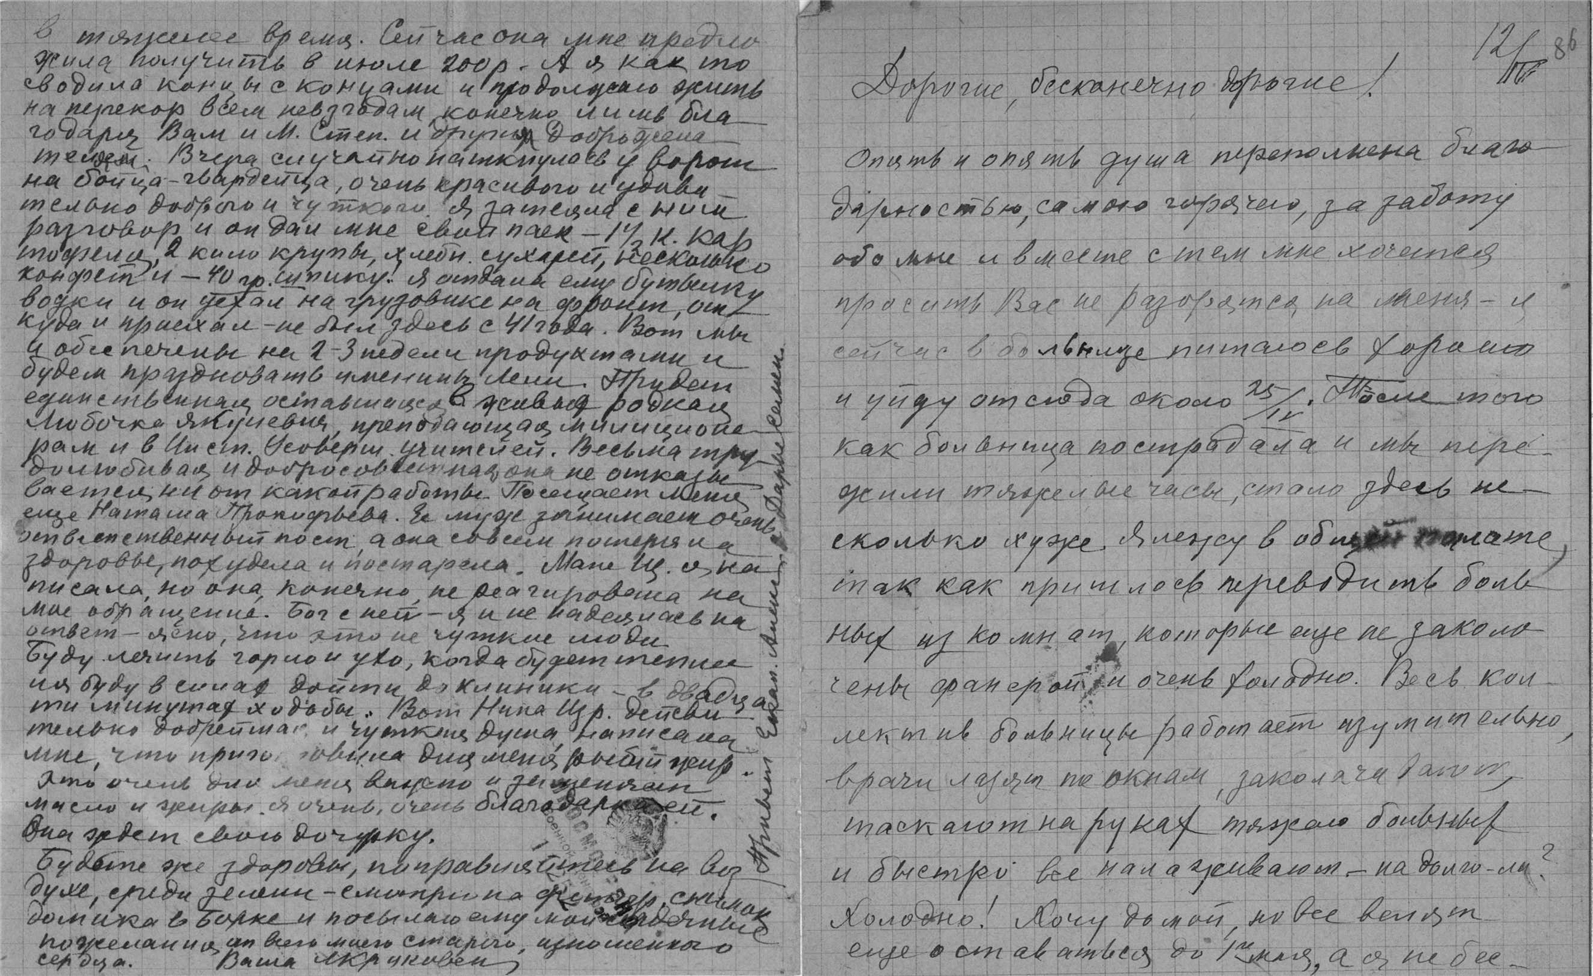 в тяжелое время. Сейчас она мне предло
жила получить в июле 200 р. А я как то
сводила концы с концами и продолжаю жить
на перекор всем невзгодам, конечно лишь бла-
годаря Вам и М. Степ. и другим доброжела
телям. Вчера случайно наткнулась у ворот
на бойца-гвардейца, очень красивого и удиви
тельно доброго и чуткого. Я затеяла с ним
разговор и он дал мне свой паек - 1½ к. кар
тофеля, 2 кило крупы, хлебн. сухарей, несколько
конфет и - 40 гр. шпику. Я отдала ему бутылку
водки и он уехал на грузовике на фронт, от
куда и приехал - не был здесь с 41 года. Вот мы
и обеспечены на 2-3 недели продуктами и
будем праздновать именины Лели. Придет
единственная оставшаяся в живых родная
Любочка Якуневич, преподающая милиционе
рам и в Инст. Усоверш. учителей. Весьма тру
долюбивая и добросовестная она не отказы
вается ни от какой работы. Посещает меня
еще Наташа Прокофьева. Ее муж занимает очень
ответственный пост, а она совсем потеряла
здоровье, похудела и постарела. Мапе Щ. я на
писала, но она, конечно, не реагировала на
мое обращение. Бог с ней - я и не надеялась на
ответ - ясно, что это не чуткие люди
Буду лечить горло и ухо, когда будет теплее
и я буду в силах дойти до клиники - в двадца
ти минутах ходьбы. Вот Нина Цзр. действи-
тельно добрейшая и чуткая душа, написала
мне, что приготовила для меня рыбий жир.
Это очень для меня важно и заменяет
масло и жиры. Я очень, очень благодарна ей.
Она ждет свою дочурку.
Будьте же здоровы, поправляйтесь на воз
духе, среди зелени - смотрю на фотогр. снимок
домика в Борке и посылаю ему мои сердечные
пожелания от всего моего старого, изношенного
сердца. Ваша М Крюковец
Привет Екат. Алекс. и Дарье Семен.
12/IV 86
Дорогие, бесконечно дорогие!
Опять и опять душа переполнена благо
дарностью, самою горячею, за заботу
обо мне и вместе с тем мне хочется
просить Вас не разорятся на меня - я
сейчас в больнице питаюсь хорошо
и уйду отсюда около 25/IV. После того
как больница пострадала и мы пере-
жили тяжелые часы, стало здесь не-
сколько хуже. Я лежу в общей палате,
так как пришлось переводить боль
ных из комнат, которые еще не заколо
чены фанерой и очень холодно. Весь кол-
лектив больницы работает изумительно,
врачи лазят по окнам, заколачивают,
таскают на руках тяжело больных
и быстро все налаживают - надолго-ли?
Холодно! Хочу домой, но все велят
еще оставаться до 1го мая, а я не бес-